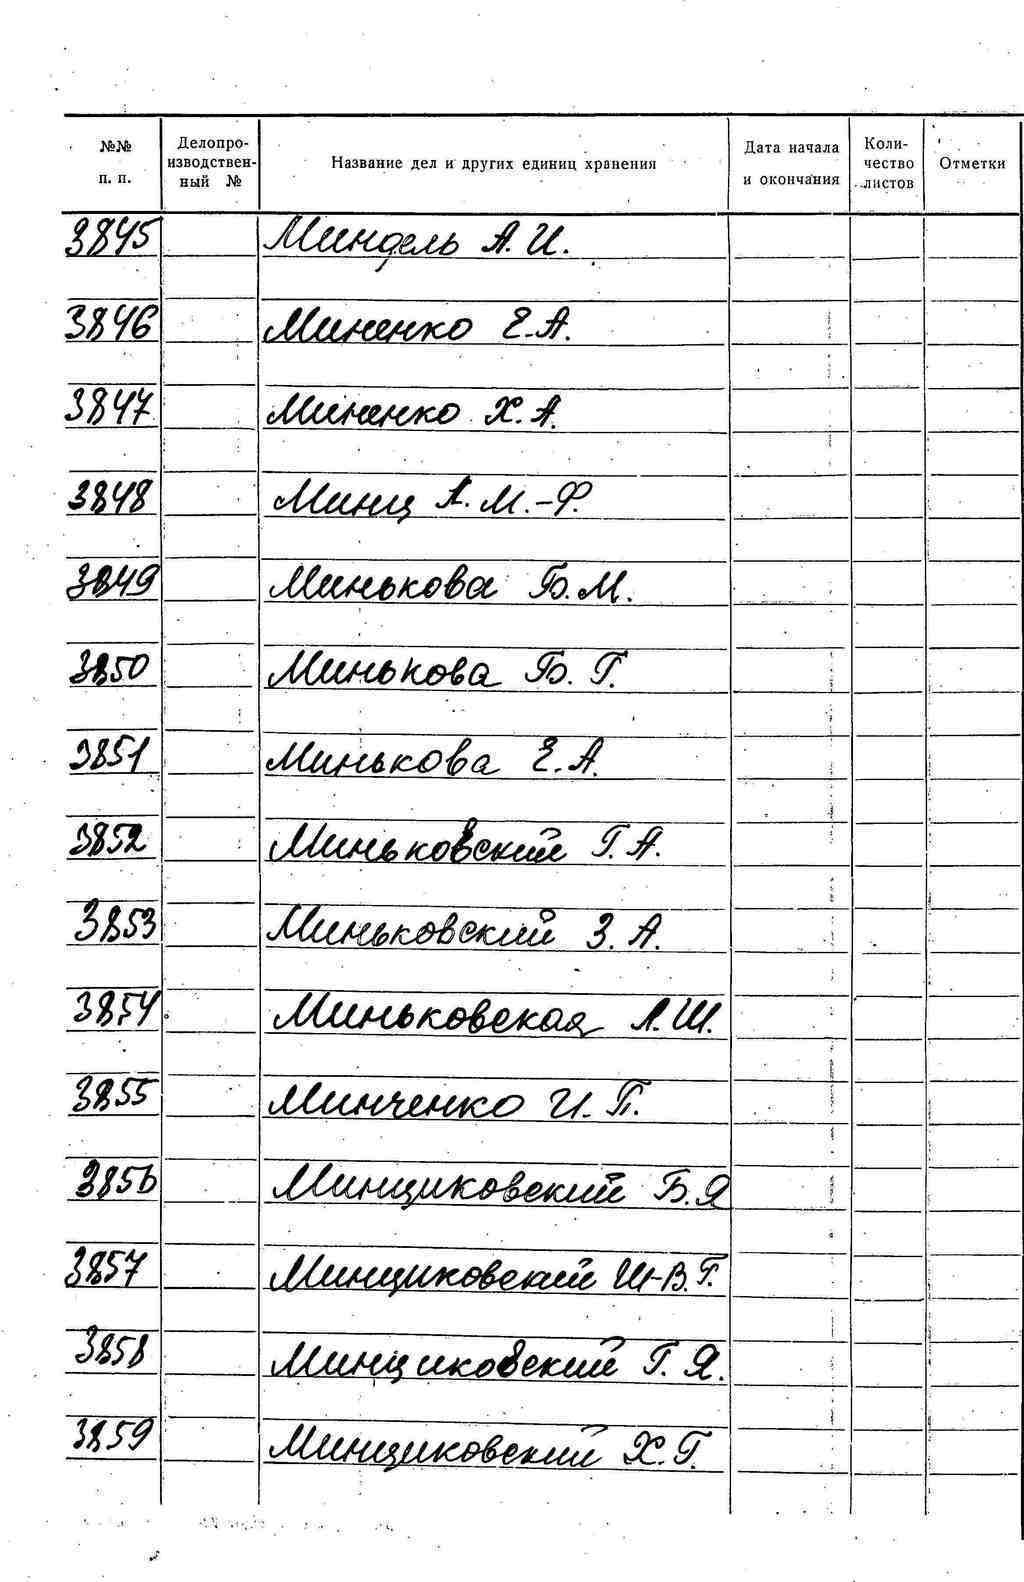 №№ п. п. Делопроизводственный № Название дел и других единиц хранения Дата начала и окончания Количество листов Отметки
3845 Миндель А. И.
3846 Миненко Е. А.
3847 Миненко Х. А.
3848 Минц А. М.-Ф.
3849 Минькова Б. М.
3850 Минькова Б. Г.
3851 Минькова Е. А.
3852 Миньковский Г. А.
3853 Миньковский З. А.
3854 Миньковская Л. Ш.
3855 Минченко И. П.
3856 Минщиковский Б. Я
3857 Минщиковский Ш-В. Г.
3858 Минщиковский Г. Я.
3859 Минщиковский Х. Г.